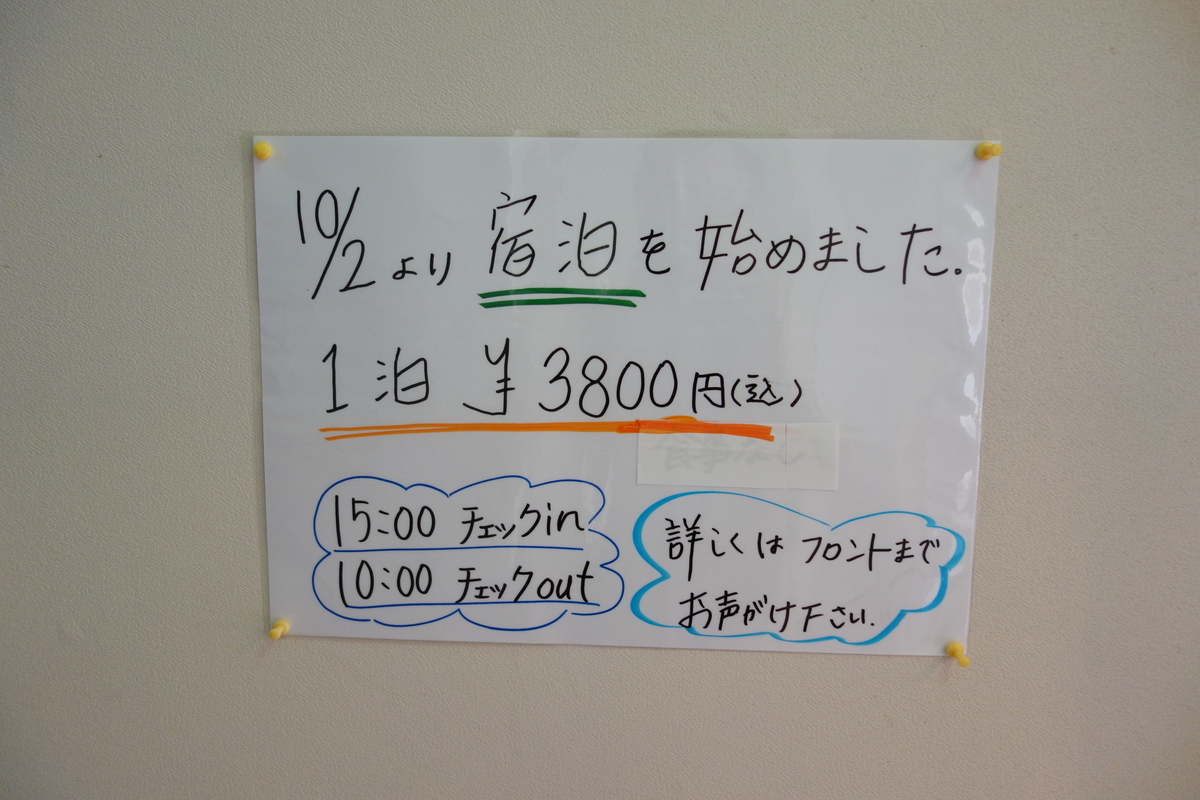 10/2より宿泊を始めました。
1泊 ¥3800円(込)
食事なし
15:00 チェックin
10:00 チェックout
詳しくは フロントまで
お声がけ下さい.